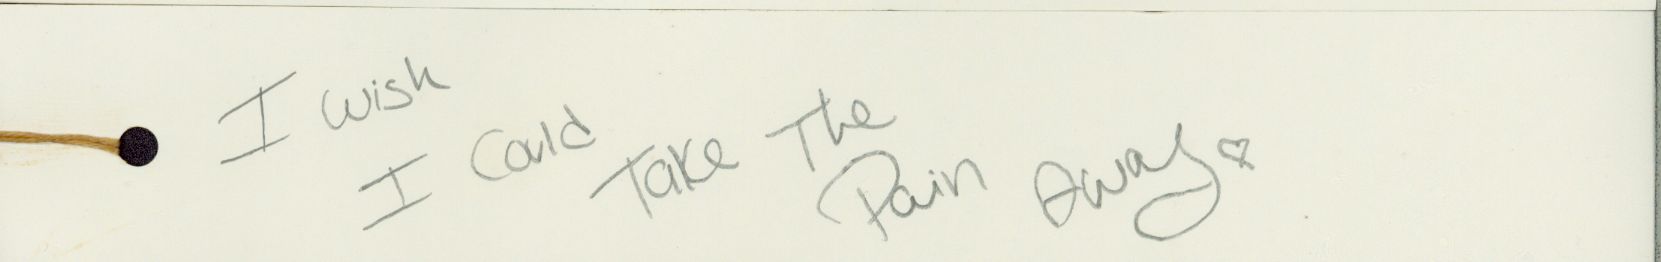 I wish
I Could Take The
Pain Away ♡